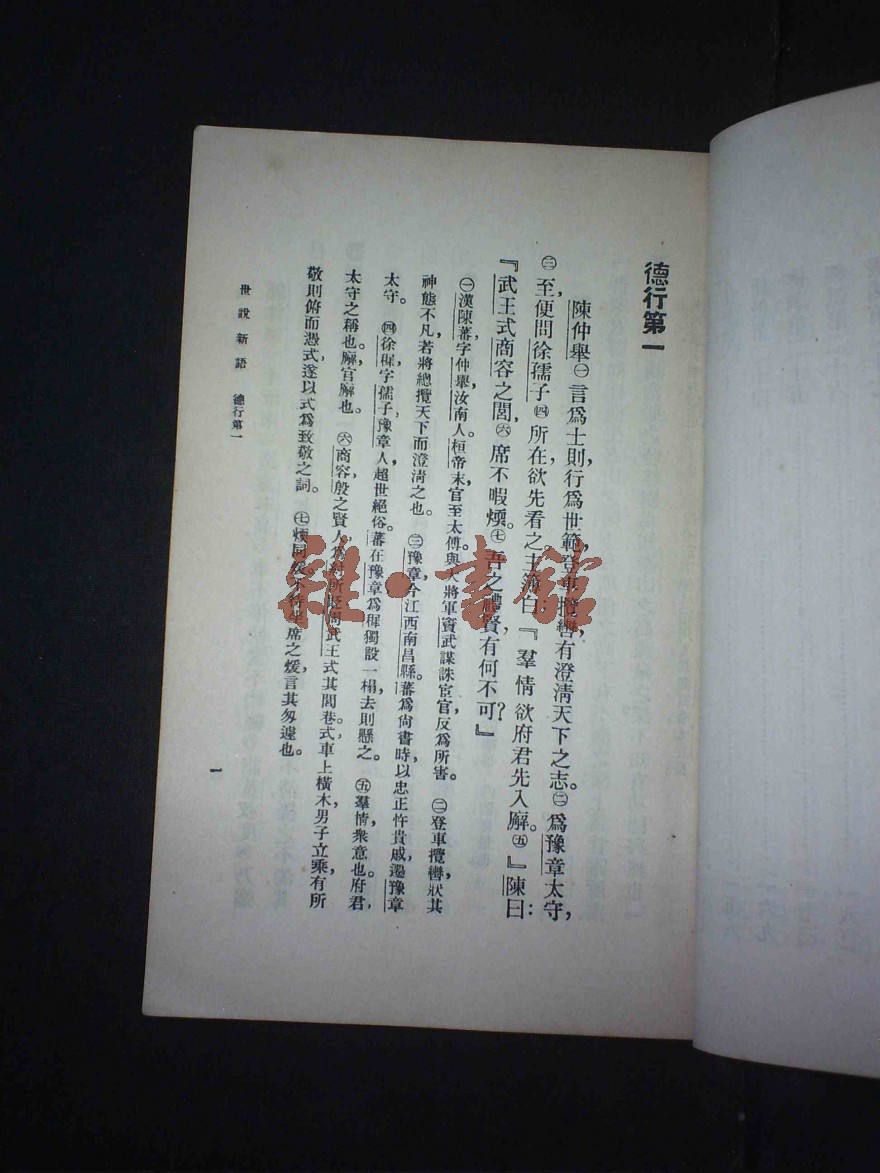 德行第一
陳仲舉㊀言爲士則，行爲世範，登車攬轡，有澄淸天下之志。㊁爲豫章太守，
㊂至，便問徐孺子㊃所在，欲先看之。主簿曰：『羣情欲府君先入廨。㊄』陳曰：
『武王式商容之閭，㊅席不暇煗。㊆吾之禮賢，有何不可？』
㊀漢陳蕃字仲舉，汝南人。桓帝末，官至太傅，與大將軍竇武謀誅宦官，反爲所害。　㊁登車攬轡，狀其
神態不凡，若將總攬天下而澄淸之也。　㊂豫章，今江西南昌縣。蕃爲尙書時，以忠正忤貴戚，遷豫章
太守。　㊃徐穉字孺子，豫章人，超世絕俗。蕃在豫章，爲穉獨設一榻，去則懸之。　㊄羣情，衆意也。府君，
太守之稱也。廨，官廨也。　㊅商容，殷之賢人，爲紂所貶，周武王式其閭巷。式，車上橫木，男子立乘，有所
敬則俯而憑式，遂以式爲致敬之詞。　㊆煗同煖，不行坐席之煖，言其匆遽也。
世說新語　德行第一
一
雜·書館